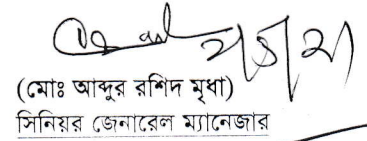 (মোঃ আব্দুর রশিদ মৃধা)
সিনিয়র জেনারেল ম্যানেজার